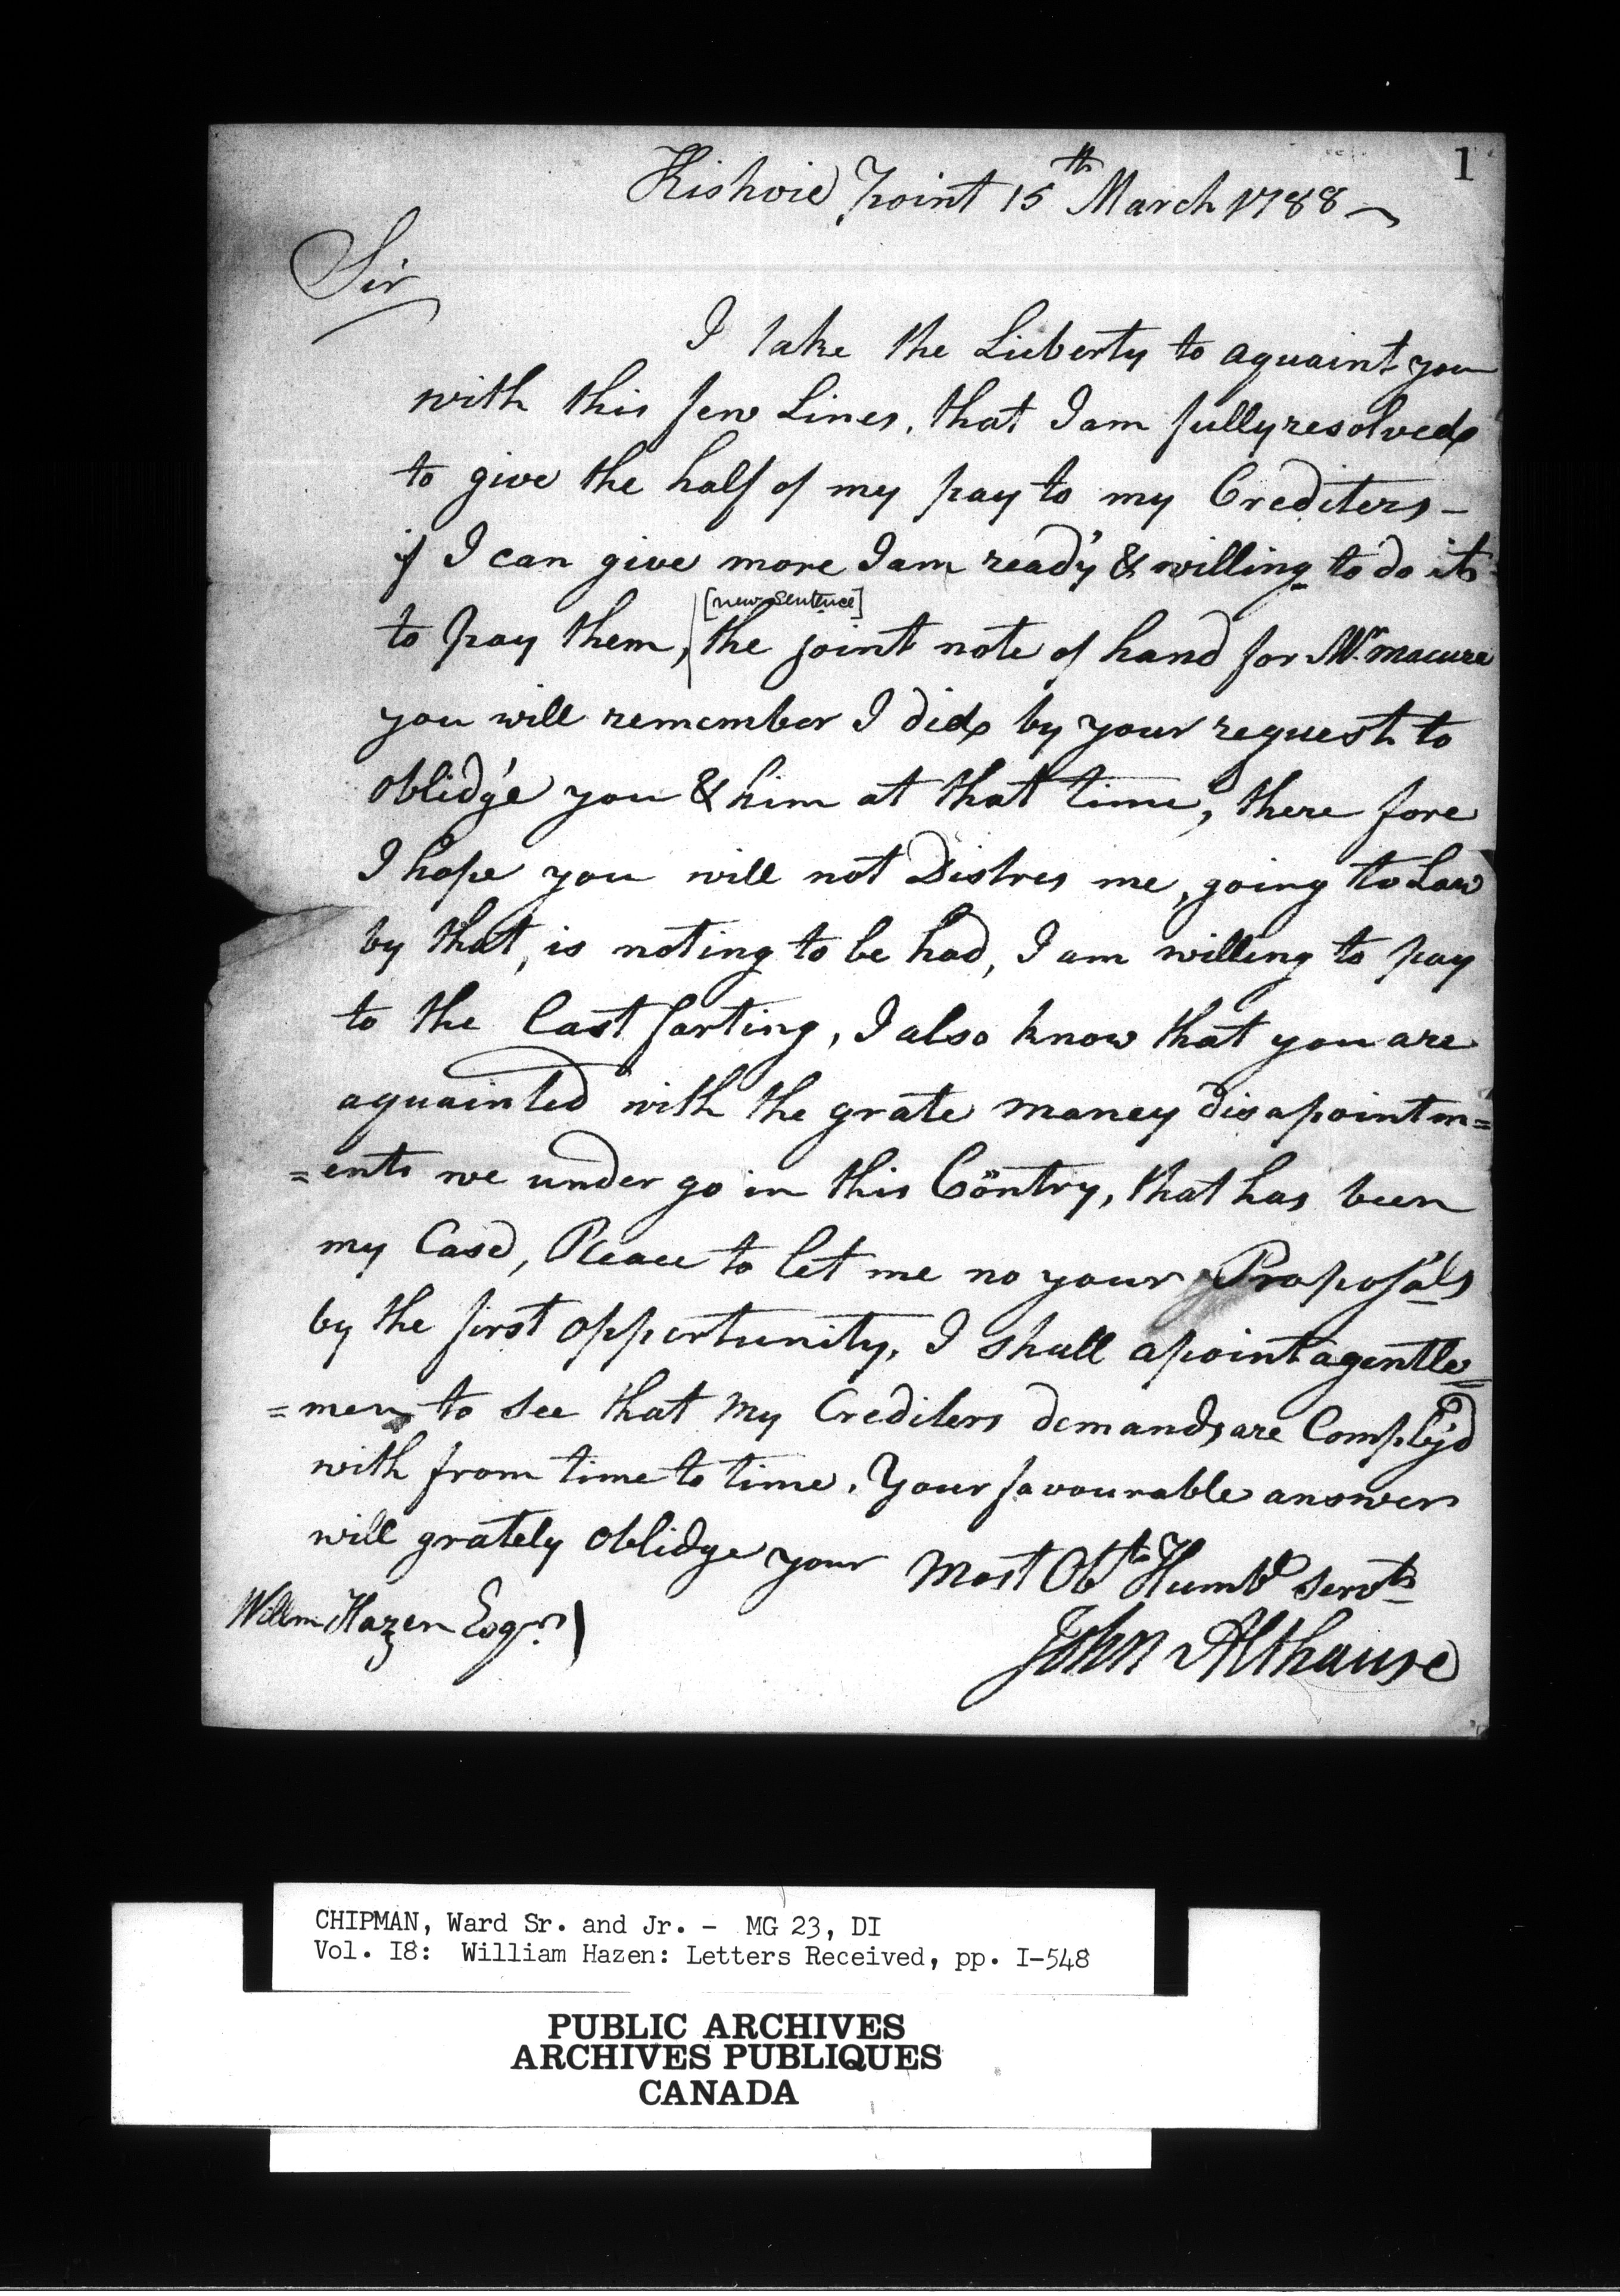 1
Kishvie Point 15th March 1788
Sir
I take the Lieberty to aquaint you
with this few Lines, that I am fully resolved
to give the half of my pay to my Crediters –
if I can give more I am ready & willing to do it
[new sentence]
to pay them, the joint note of hand for Mr. macure
you will remember I did by your request to
oblidge you & him at that time, there fore
I hope you will not Distres me, going to Law
by that, is noting to be had, I am willing to pay
to the last farting, I also know that you are
aquainted with the grate maney disapointm=
=ents we under go in this Contry, that has been
my Case, Pleace to let me no your Proposals
by the first opportunity, I shall apoint a gentle=
=men to see that my Crediters demands are Comply'd
with from time to time. Your favourable answer
will grately oblidge your Most Obt Humbl servt
Willm Hazen Esqr.
John Althause
CHIPMAN, Ward Sr. and Jr. - MG 23, DI
Vol. I8: William Hazen: Letters Received, pp. I-548
PUBLIC ARCHIVES
ARCHIVES PUBLIQUES
CANADA